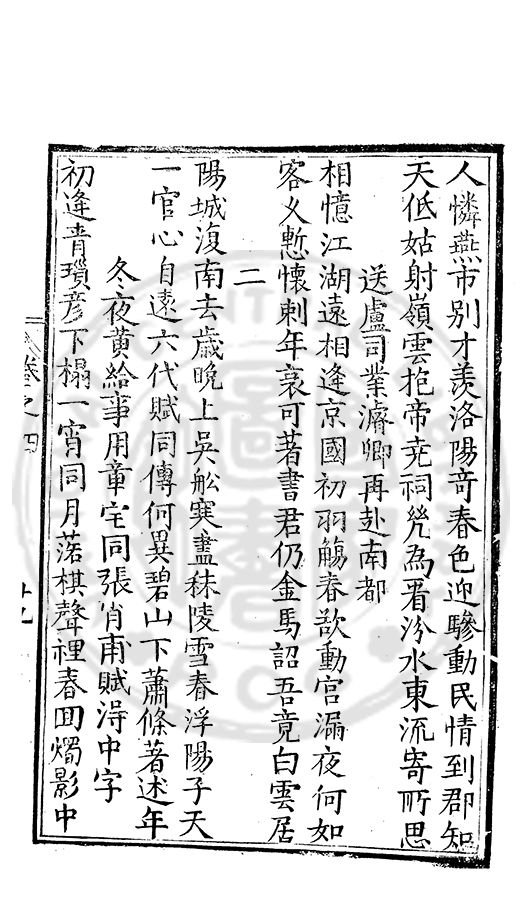 人憐燕市別才羨洛陽竒春色迎驂動民情到郡知
天低姑射嶺雲抱帝堯祠凭為看汾水東流寄所思
送盧司業濬卿再赴南都
相憶江湖遠相逢京國初羽觴春欲動宫漏夜何如
客乆慙懷刺年衰可著書君仍金馬詔吾竟白雲居
二
陽城復南去歲晚上吳舩寒盡秣陵雪春浮陽子天
一官心自逺六代賦同傳何異碧山下蕭條著述年
冬夜黄給事用章宅同張肖甫賦淂中字
初逢青瑣彦下榻一宵同月落棋聲裡春囬燭影中
卷之四
十九